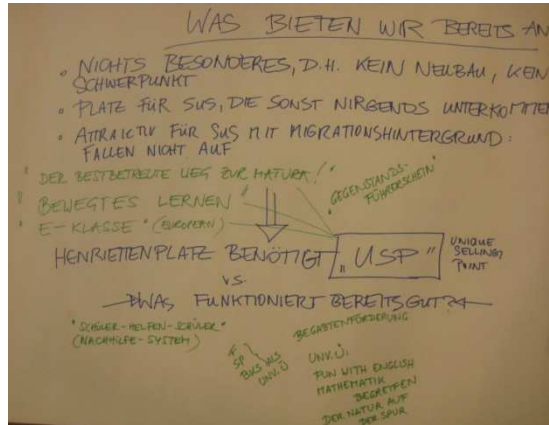 WAS BIETEN WIR BEREITS AN
• NICHTS BESONDERES, D.H. KEIN NEUBAU, KEIN
SCHWERPUNKT
• PLATZ FÜR SUS, DIE SONST NIRGENDS UNTERKOMMEN
• ATTRAKTIV FÜR SUS MIT MIGRATIONSHINTERGRUND:
FALLEN NICHT AUF
"DER BESTBETREUTE WEG ZUR MATURA!"
"GEGENSTANDS-
FÜHRERSCHEIN"
"BEWEGTES LERNEN"
"E-KLASSE" (EUROPEAN)
HENRIETTENPLATZ BENÖTIGT "USP"
UNIQUE
SELLING
POINT
VS.
WAS FUNKTIONIERT BEREITS GUT?
"SCHÜLER-HELFEN-SCHÜLER"
(NACHHILFE-SYSTEM)
F
SP
BKS ALS
UNV.Ü
BEGABTENFÖRDERUNG
UNV.Ü:
FUN WITH ENGLISH
MATHEMATIK
BEGREIFEN
DER NATUR AUF
DER SPUR